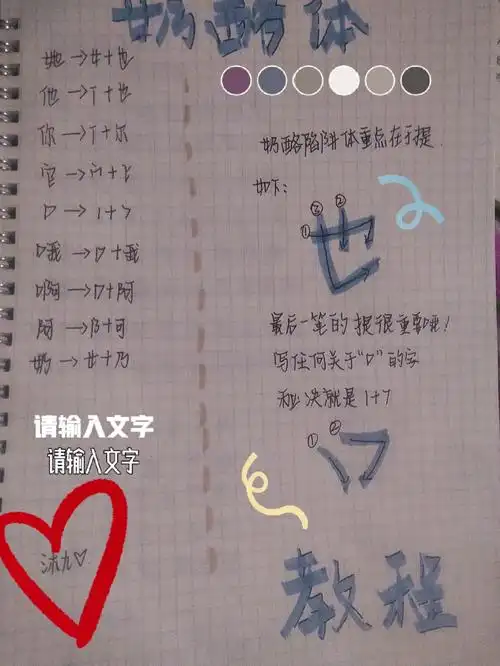 奶酪体
她→女+也
他→亻+也
你→亻+尔
官→宀+㠯
口→1+7
哦→口+我
啊→口+阿
阿→阝+可
奶→女+乃
请输入文字
请输入文字
沐九♡
奶酪陷阱体重点在于提.
如下:
① ③ ②
也
最后一笔的提很重要哦!
写任何关于“口”的字
秘决就是1+7
① ②
口
教程